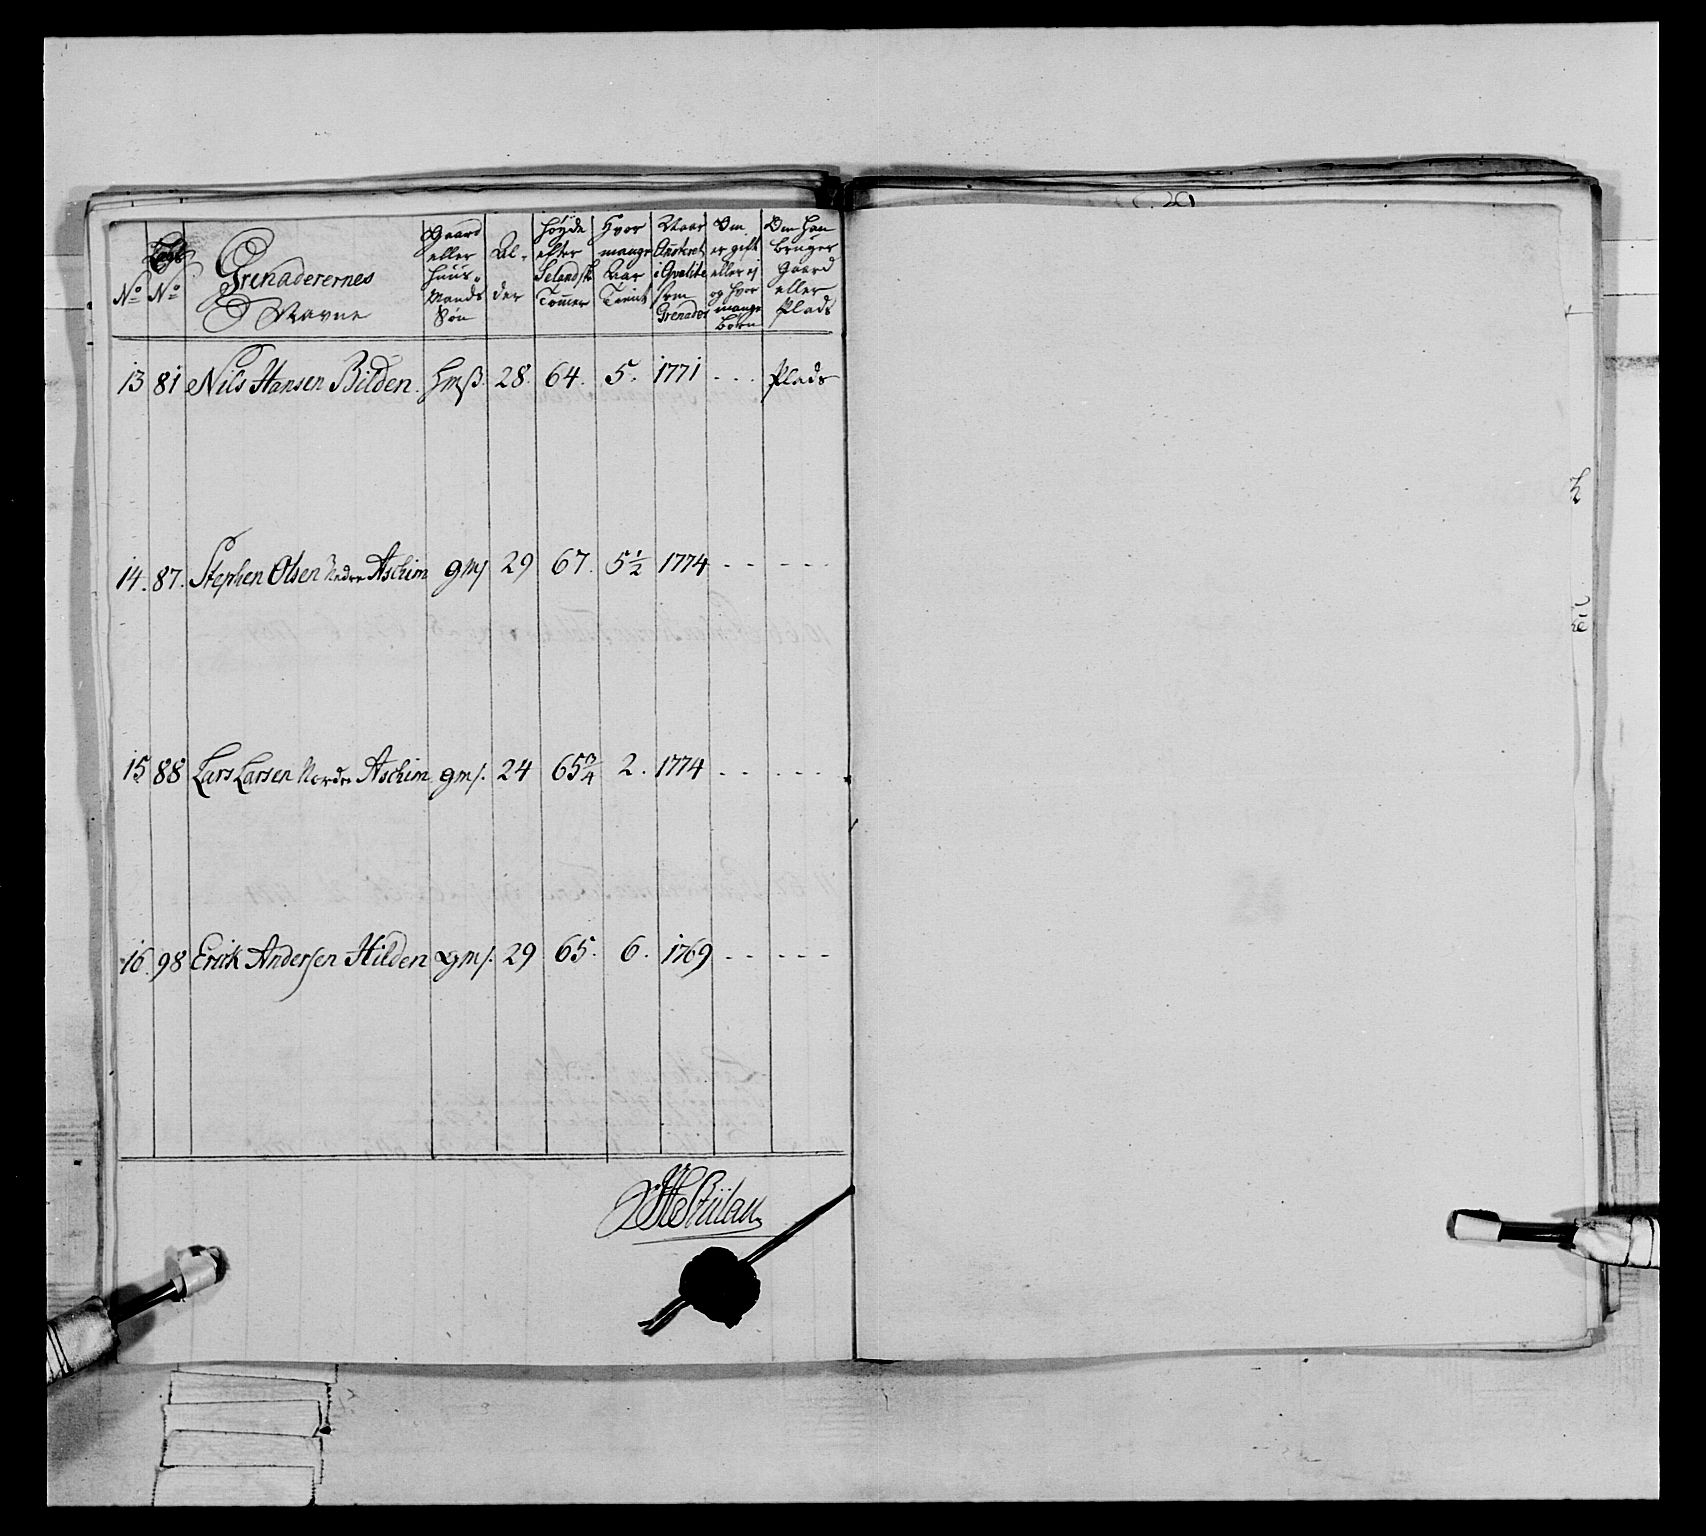 No
Lægd No
Grenaderernes Navne
Gaard eller Huus-Mands Søn
Al-der
Høyde efter Selandsk Tommer
Hvor mange Aar Tient
Naar Anskret i Qvalite som Grenader
Om er gift eller ej og hvor mange Børn
Om han bruger Gaard eller Plads
13 81 Nils Hansen Bilden. Hmß. 28. 64. 5. 1771 - - - Plads
14. 87. Stephen Olsen Nedre Aschim gmſ 29 67. 5 1/2 1774 - - - - -
15 88 Lars Larsen Nordre Aschim gmſ. 24 65 3/4 2. 1774 - - - - -
16. 98 Erick Andersen Hilden gmſ. 29 65. 6. 1769 - - - - -